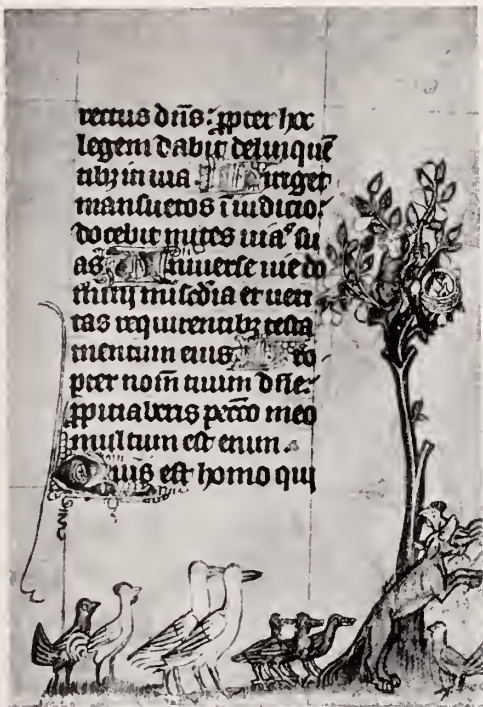 rectus dn̄s: ꝓpter hoc
legem dabit delinquē
tibꝫ in uia Diriget
mansuetos ī iudicio:
docebit mites uias su
as Vniuerse uie do
mini mis̄cdia et ueri
tas requirentibꝫ testa
mentum eius Pro
pter nom̄ tuum dn̄e:
ꝓpitiaberis pecc̄o meo
multum est enim.
Quis est homo qui